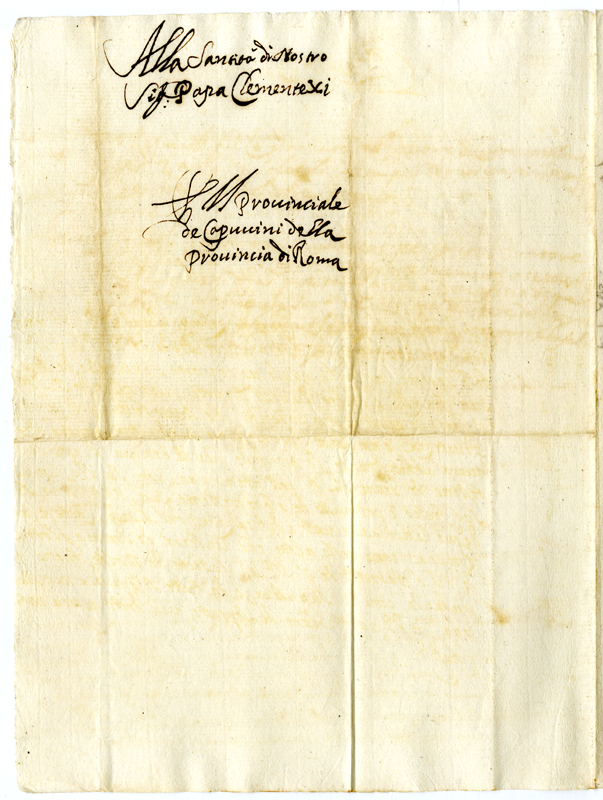 Alla Santità di Nostro
Sig.r Papa Clemente XI
Il Provinciale
de Capuccini della
Provincia di Roma